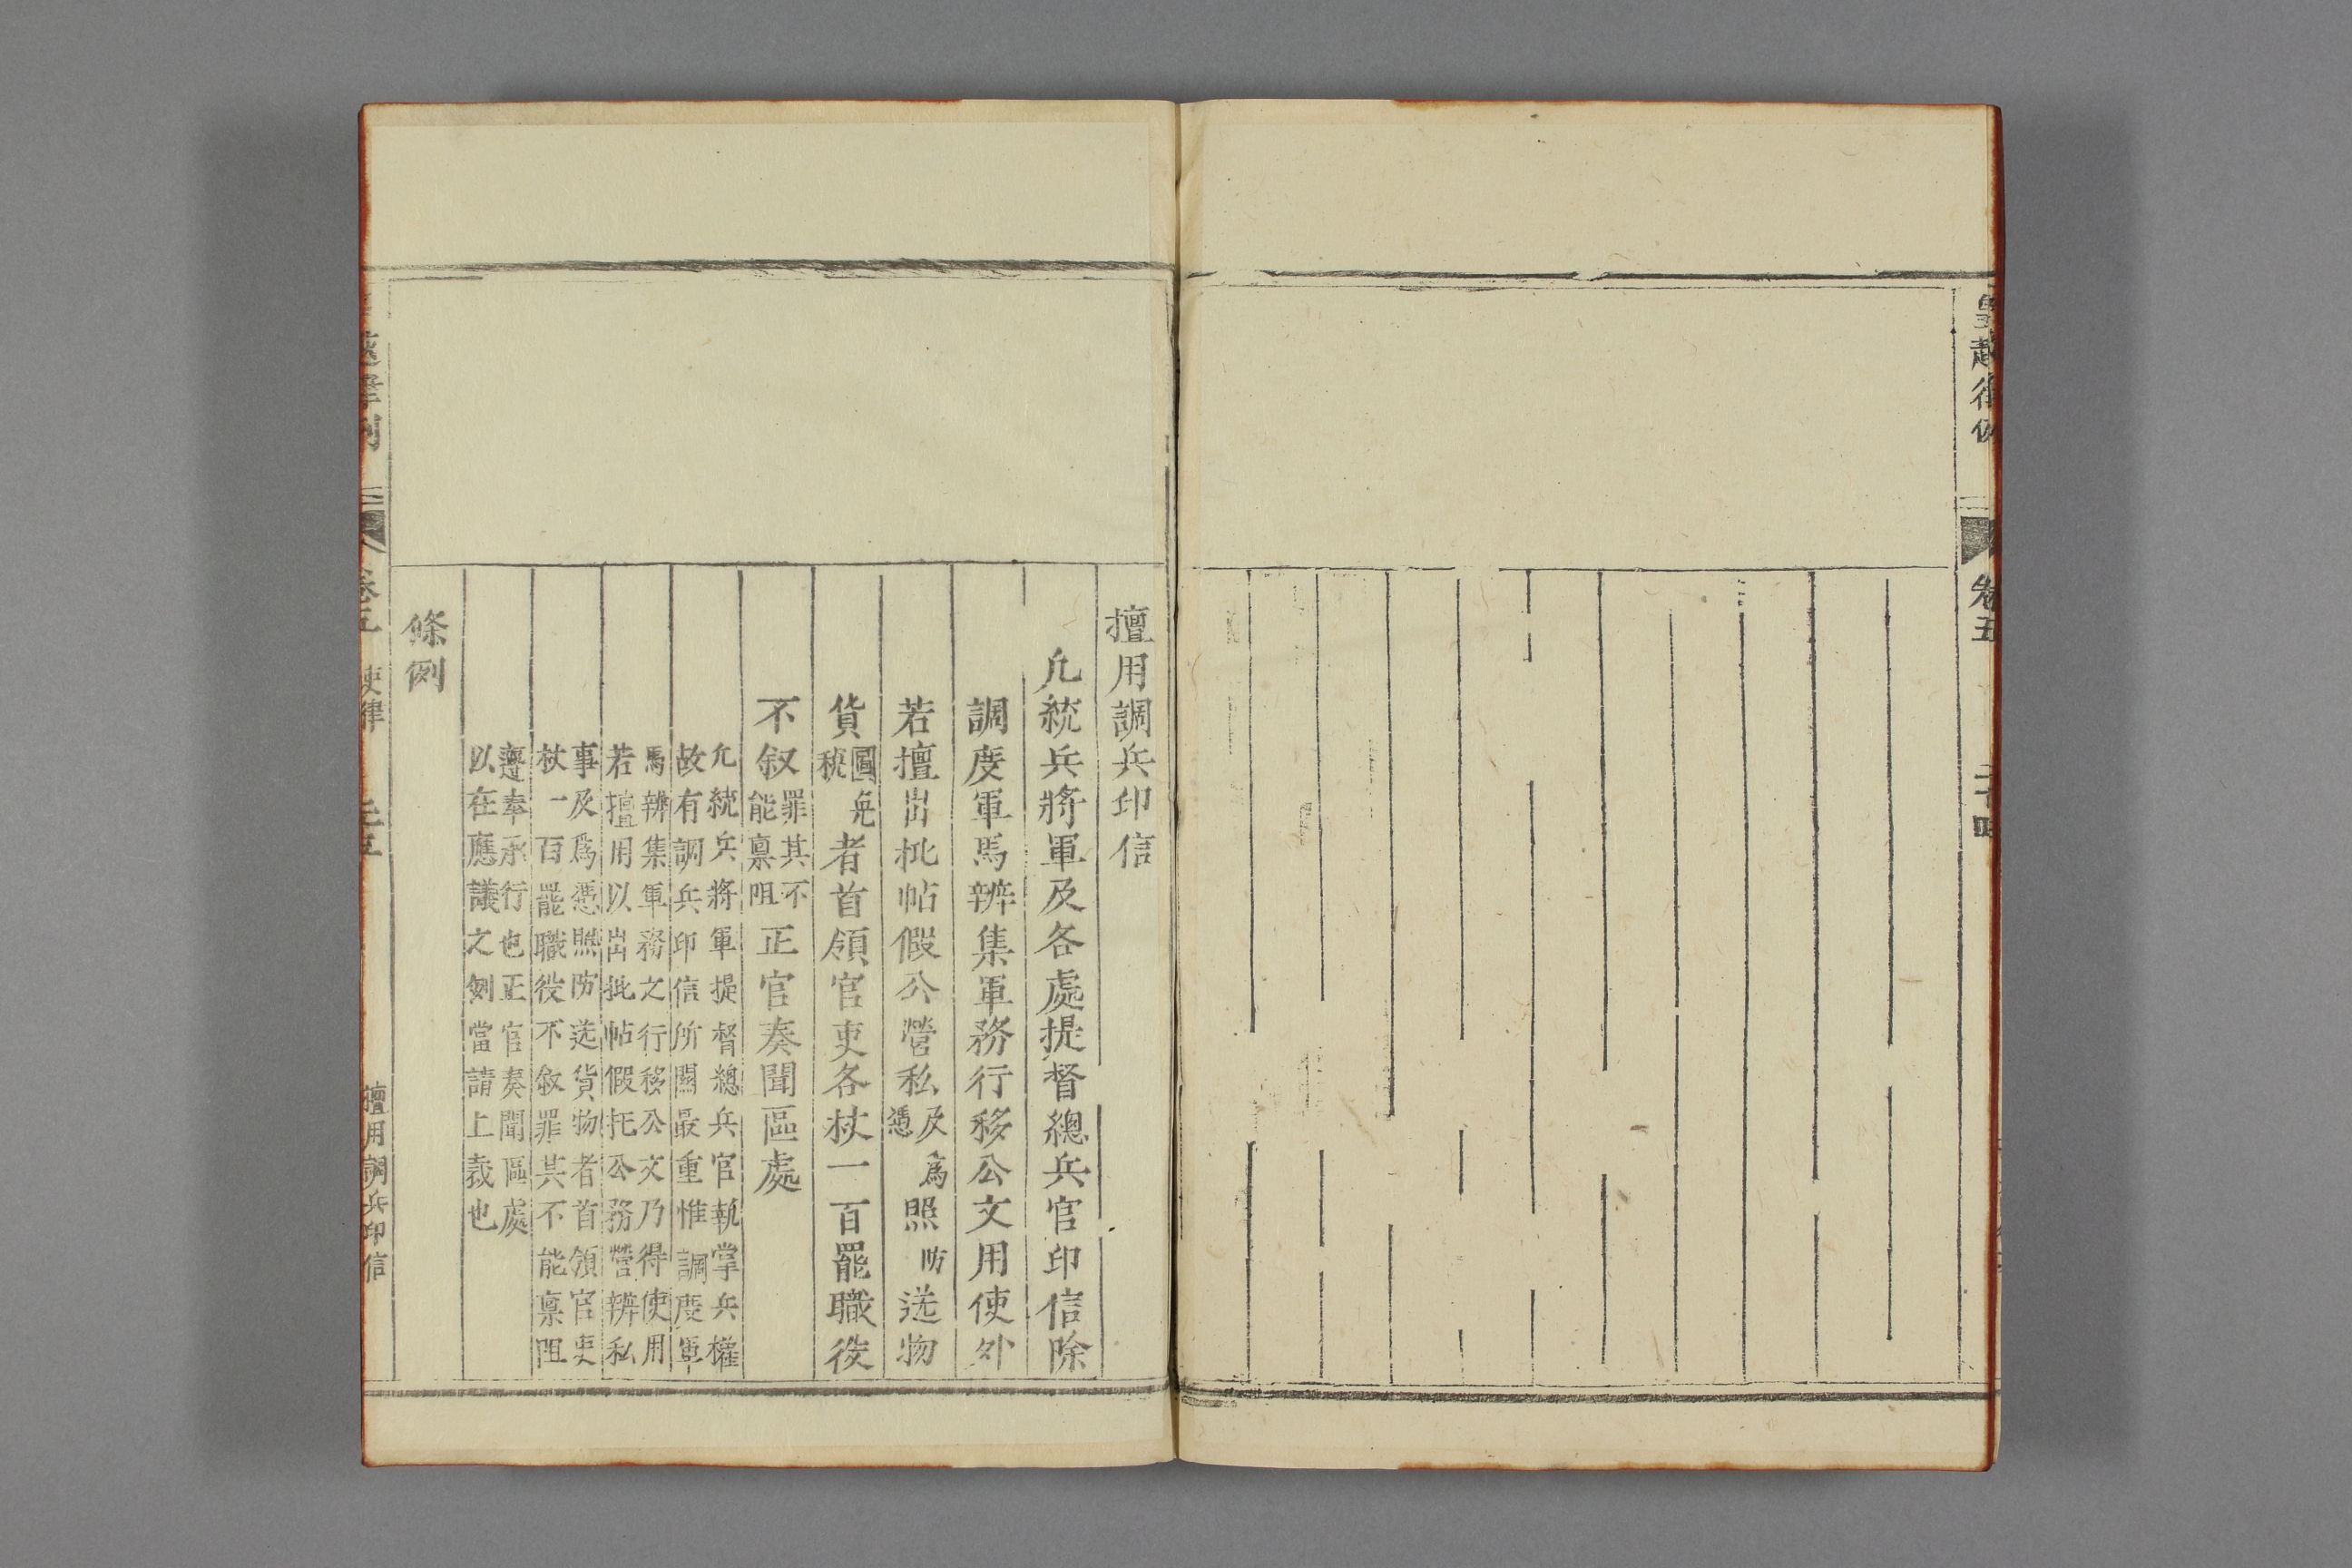 皇越律例 卷五 二十四
擅用調兵印信
凢統兵將軍及各處提督總兵官印信除
調度軍馬辨集軍務行移公文用使外
若擅出批帖假公營私及爲憑照防送物
貨圖免稅者首領官吏各杖一百罷職役
不叙罪其不能禀阻正官奏聞區處
凢統兵將軍提督總兵官執掌兵權
故有調兵印信所關最重惟調度軍
馬辨集軍務之行移公文乃得使用
若擅用以出批帖假托公務營辨私
事及爲憑照防送貨物者首領官吏
杖一百罷職役不叙罪其不能禀阻
遵奉承行也正官奏聞區處
以在應議之例當請上裁也
條例
越律例 卷五 吏律 擅用調兵印信